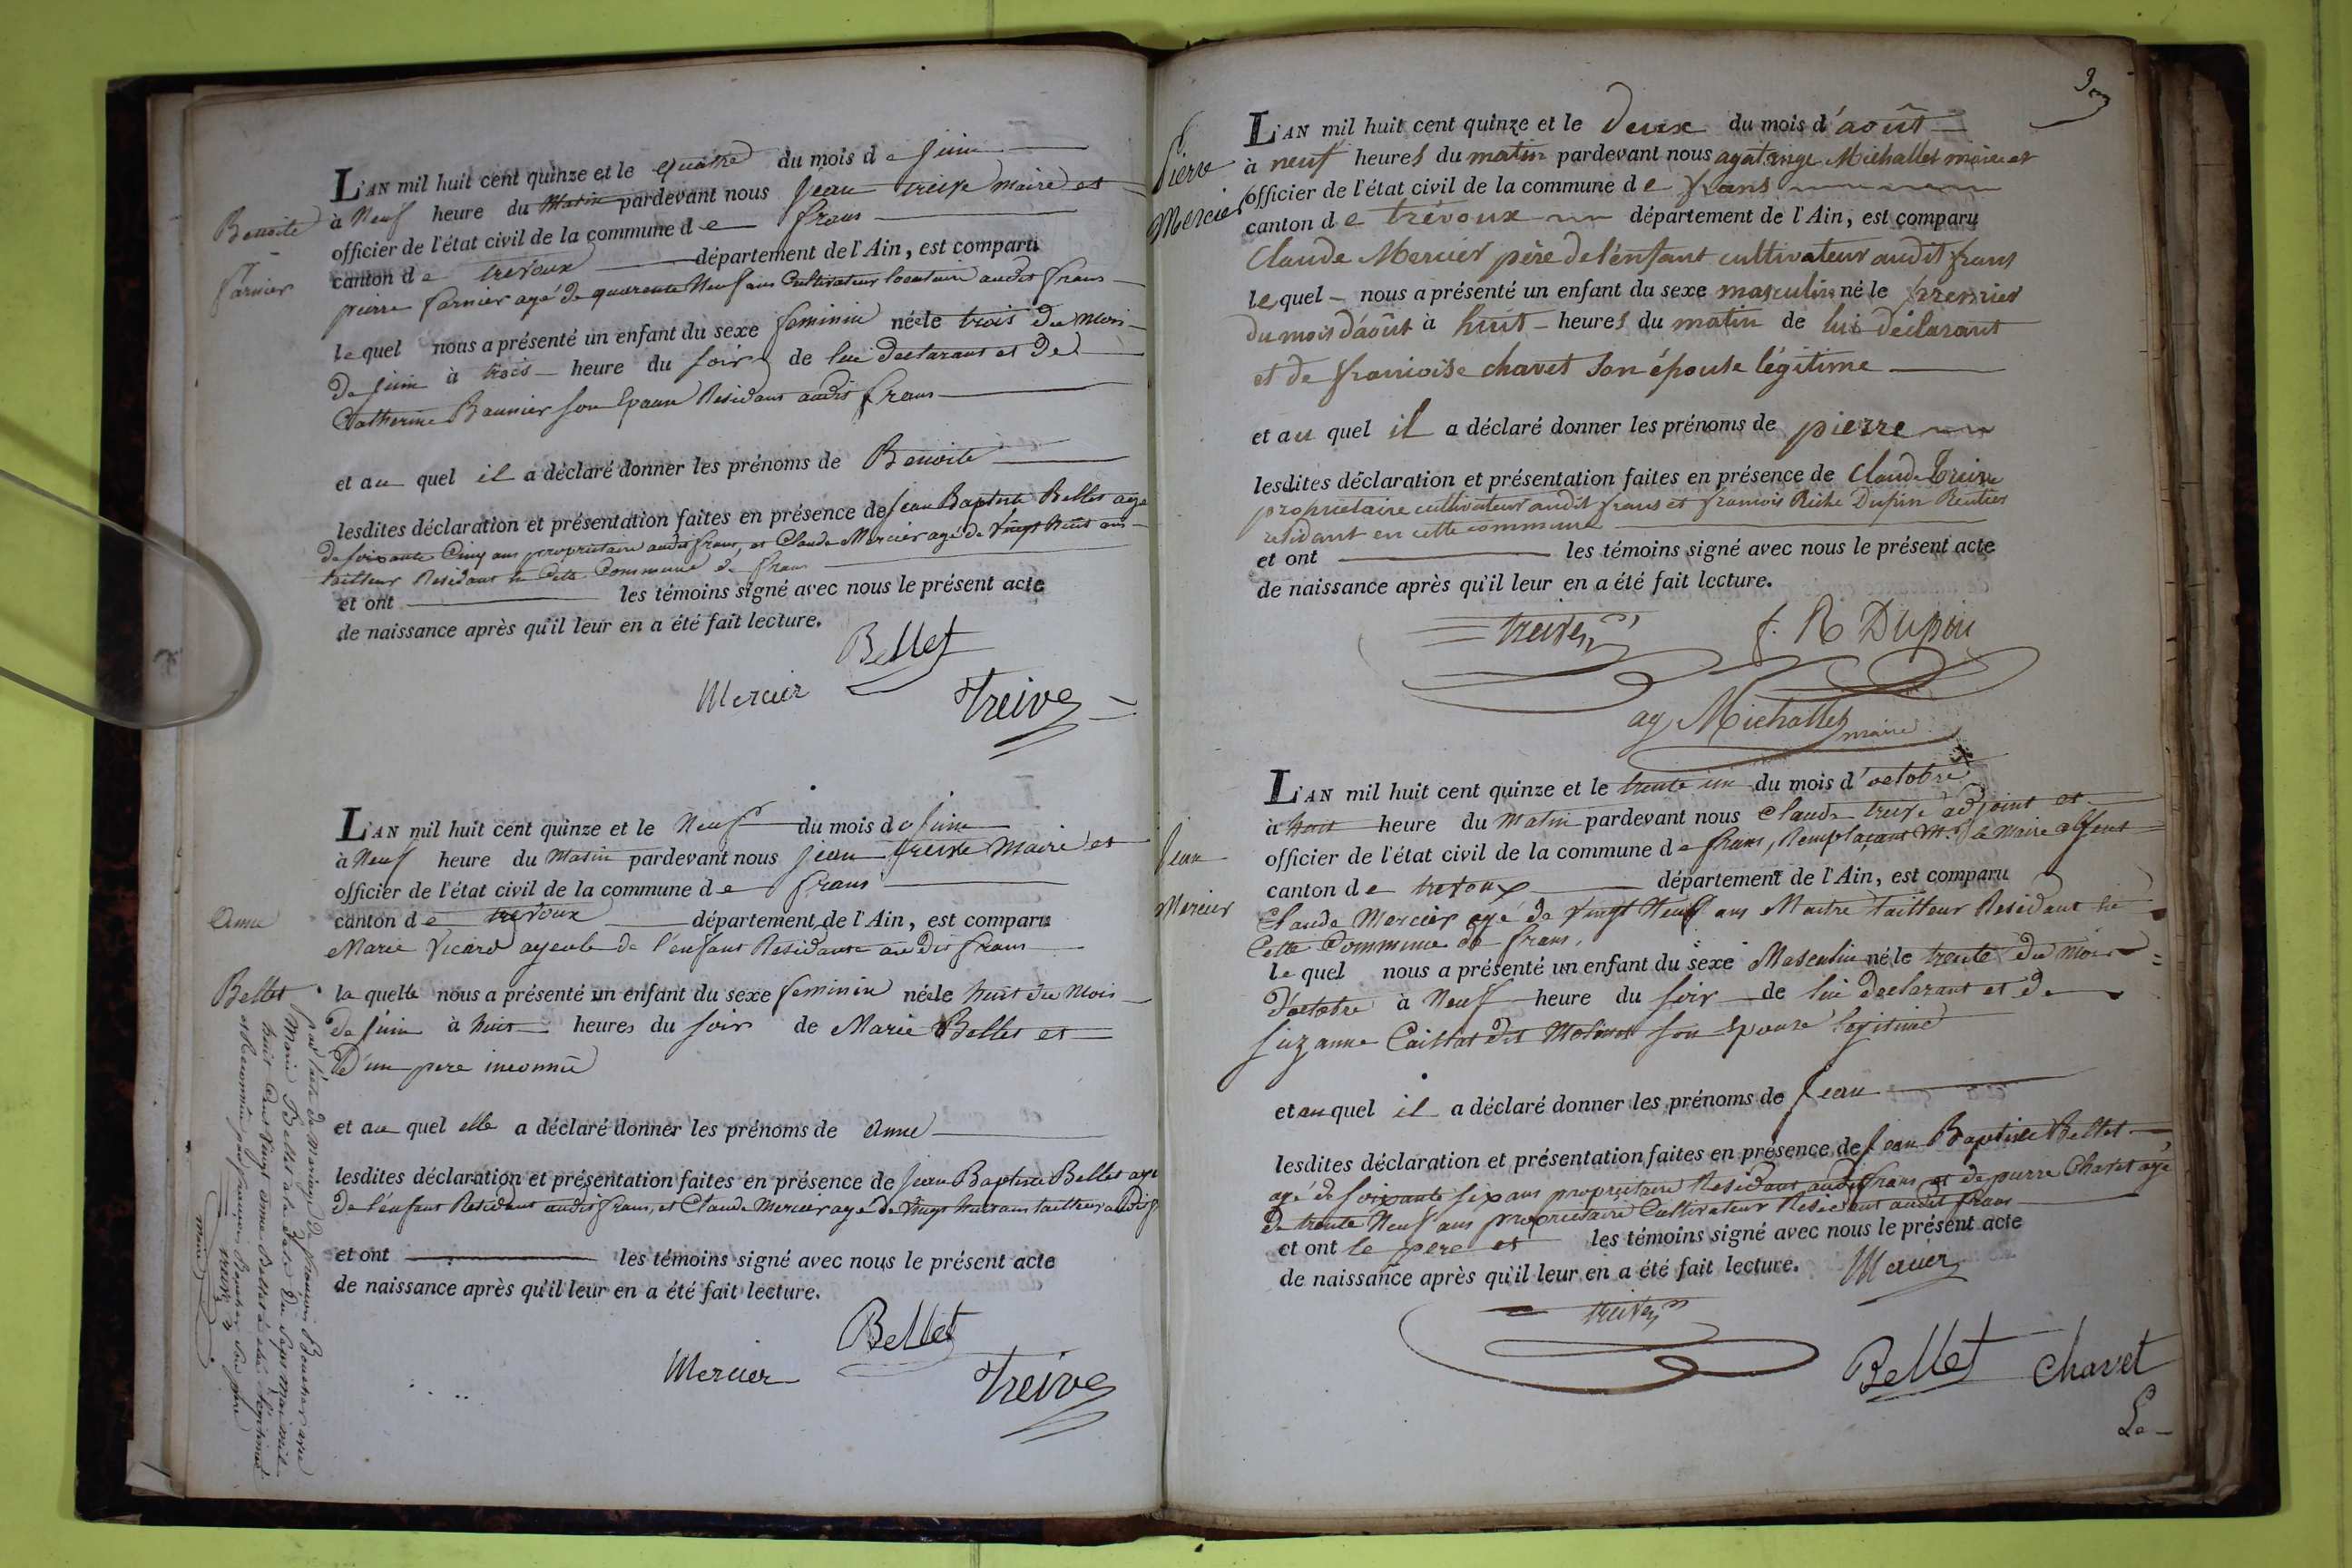 Benoite
Farnier
L'AN mil huit cent quinze et le quatre du mois de Juin
à Neuf heure du Matin pardevant nous Jean treive maire et
officier de l'état civil de la commune de frans
canton de trevoux département de l'Ain, est comparu
pierre farnier agé de quarente Neuf ans Cultivateur locataire audit frans
lequel nous a présenté un enfant du sexe feminin née le trois du Mois
de Juin à trois heure du soir de lui declarant et de
Catherine Baunier son Epouse Residant audit frans
et au quel il a déclaré donner les prénoms de Benoite
lesdites déclaration et présentation faites en présence de Jean Baptiste Bellet agé
de soixante Cinq ans proprietaire audit frans, et Claude Mercier agé de Vingt huit ans
tailleur Residant en Cette Commune de frans
et ont les témoins signé avec nous le présent acte
de naissance après qu'il leur en a été fait lecture.
Bellet
Mercier
Treive
Anne
Bellet
L'AN mil huit cent quinze et le Neuf du mois de Juin
à Neuf heure du Matin pardevant nous Jean treive Maire et
officier de l'état civil de la commune de frans
canton de trevoux département de l'Ain, est comparu
Marie Vicard ayeule de l'enfant Residante audit frans
la quelle nous a présenté un enfant du sexe feminin née le huit du Mois
de Juin à huit heures du soir de Marie Bellet et
D'un pere inconnu
et au quel elle a déclaré donner les prénoms de Anne
lesdites déclaration et présentation faites en présence de Jean Baptiste Bellet aye
de l'enfant Residant audit frans, et Claude Mercier agé de Vingt huit ans tailleur audit f
et ont les témoins signé avec nous le présent acte
de naissance après qu'il leur en a été fait lecture.
Bellet
Mercier
Treive
par l'acte de Mariage de françois Bouchar avec
Marie Bellet à la date du sept Mai mil
huit Cent Vingt anne Bellet a été légitimée
et Reconnue par françois Bouchar son père
treive
maire
3
Pierre
Mercier
L'AN mil huit cent quinze et le deux du mois d'août
à neuf heures du matin pardevant nous agatange Michallet maire et
officier de l'état civil de la commune de frans
canton de trévoux département de l'Ain, est comparu
Claude Mercier père de l'enfant cultivateur audit frans
lequel nous a présenté un enfant du sexe masculin né le premier
du mois d'août à huit heures du matin de lui déclarant
et de francoise chavet son épouse légitime
et au quel il a déclaré donner les prénoms de pierre
lesdites déclaration et présentation faites en présence de Claude Treive
proprietaire cultivateur audit frans et francois Riche Dupin Rentier
residant en cette commune
et ont les témoins signé avec nous le présent acte
de naissance après qu'il leur en a été fait lecture.
treive
f. R Dupin
ag Michallet maire
Jean
Mercier
L'AN mil huit cent quinze et le trente un du mois d'octobre
à huit heure du Matin pardevant nous Claude treive adjoint et
officier de l'état civil de la commune de frans, Remplaçant Mr le Maire absent
canton de trevoux département de l'Ain, est comparu
Claude Mercier agé de Vingt Neuf ans Maitre tailleur Residant en
Cette Commune de frans,
lequel nous a présenté un enfant du sexe Masculin né le trente du Mois
d'octobre à Neuf heure du soir de lui declarant et de
Suzanne Caillat dit son Epouse legitime
et au quel il a déclaré donner les prénoms de Jean
lesdites déclaration et présentation faites en présence de Jean Baptiste Bellet
agé de soixante six ans proprietaire Residant audit frans et de pierre Chavet agé
de trente Neuf ans proprietaire Cultivateur Residant audit frans
et ont le pere et les témoins signé avec nous le présent acte
de naissance après qu'il leur en a été fait lecture.
Mercier
treive
Bellet
Chavet
Le